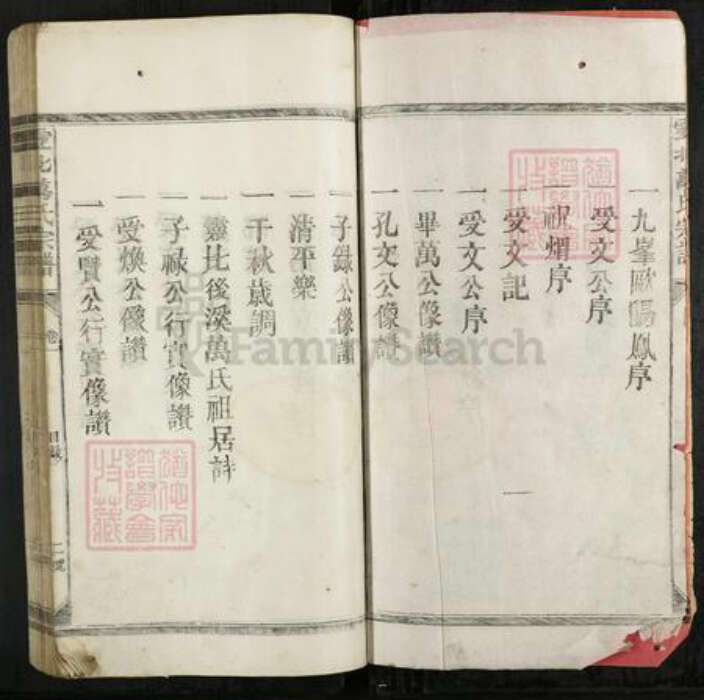 一九峯歐陽鳳序
一受文公序
一祝烟序
一受文記
一受文公序
一畢萬公像讚
一孔文公像讚
一子錄公像讚
一清平樂
一千秋歲調
一靈北後溪萬氏祖居詩
一子祿公行實像讚
一受煥公像讚
一受賢公行實像讚
靈北萬氏宗譜
卷
目錄
二號
FamilySearch